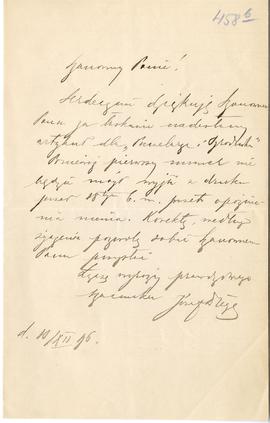 458 b
Szanowny Panie!
Serdecznie dziękuję Szanownemu
Panu za łaskawie nadesłany
artykuł dla
Ponieważ pierwszy numer nie
będzie mógł wyjść z druku
przed 18 b. m. przeto
nic nie Korektę, według
życzenia pozwolę sobie Szanownemu
Panu przysłać
Łączę wyrazy prawdziwego
szacunku Józef
d. 10/XII 96.